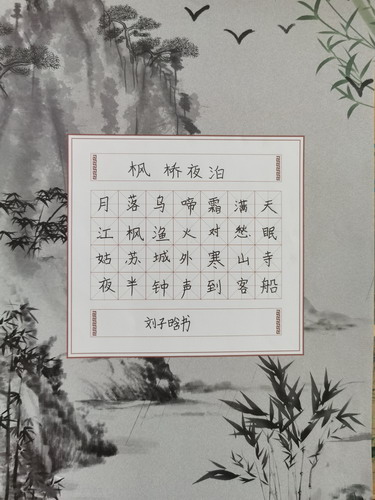 枫桥夜泊
月落乌啼霜满天
江枫渔火对愁眠
姑苏城外寒山寺
夜半钟声到客船
刘子晗书